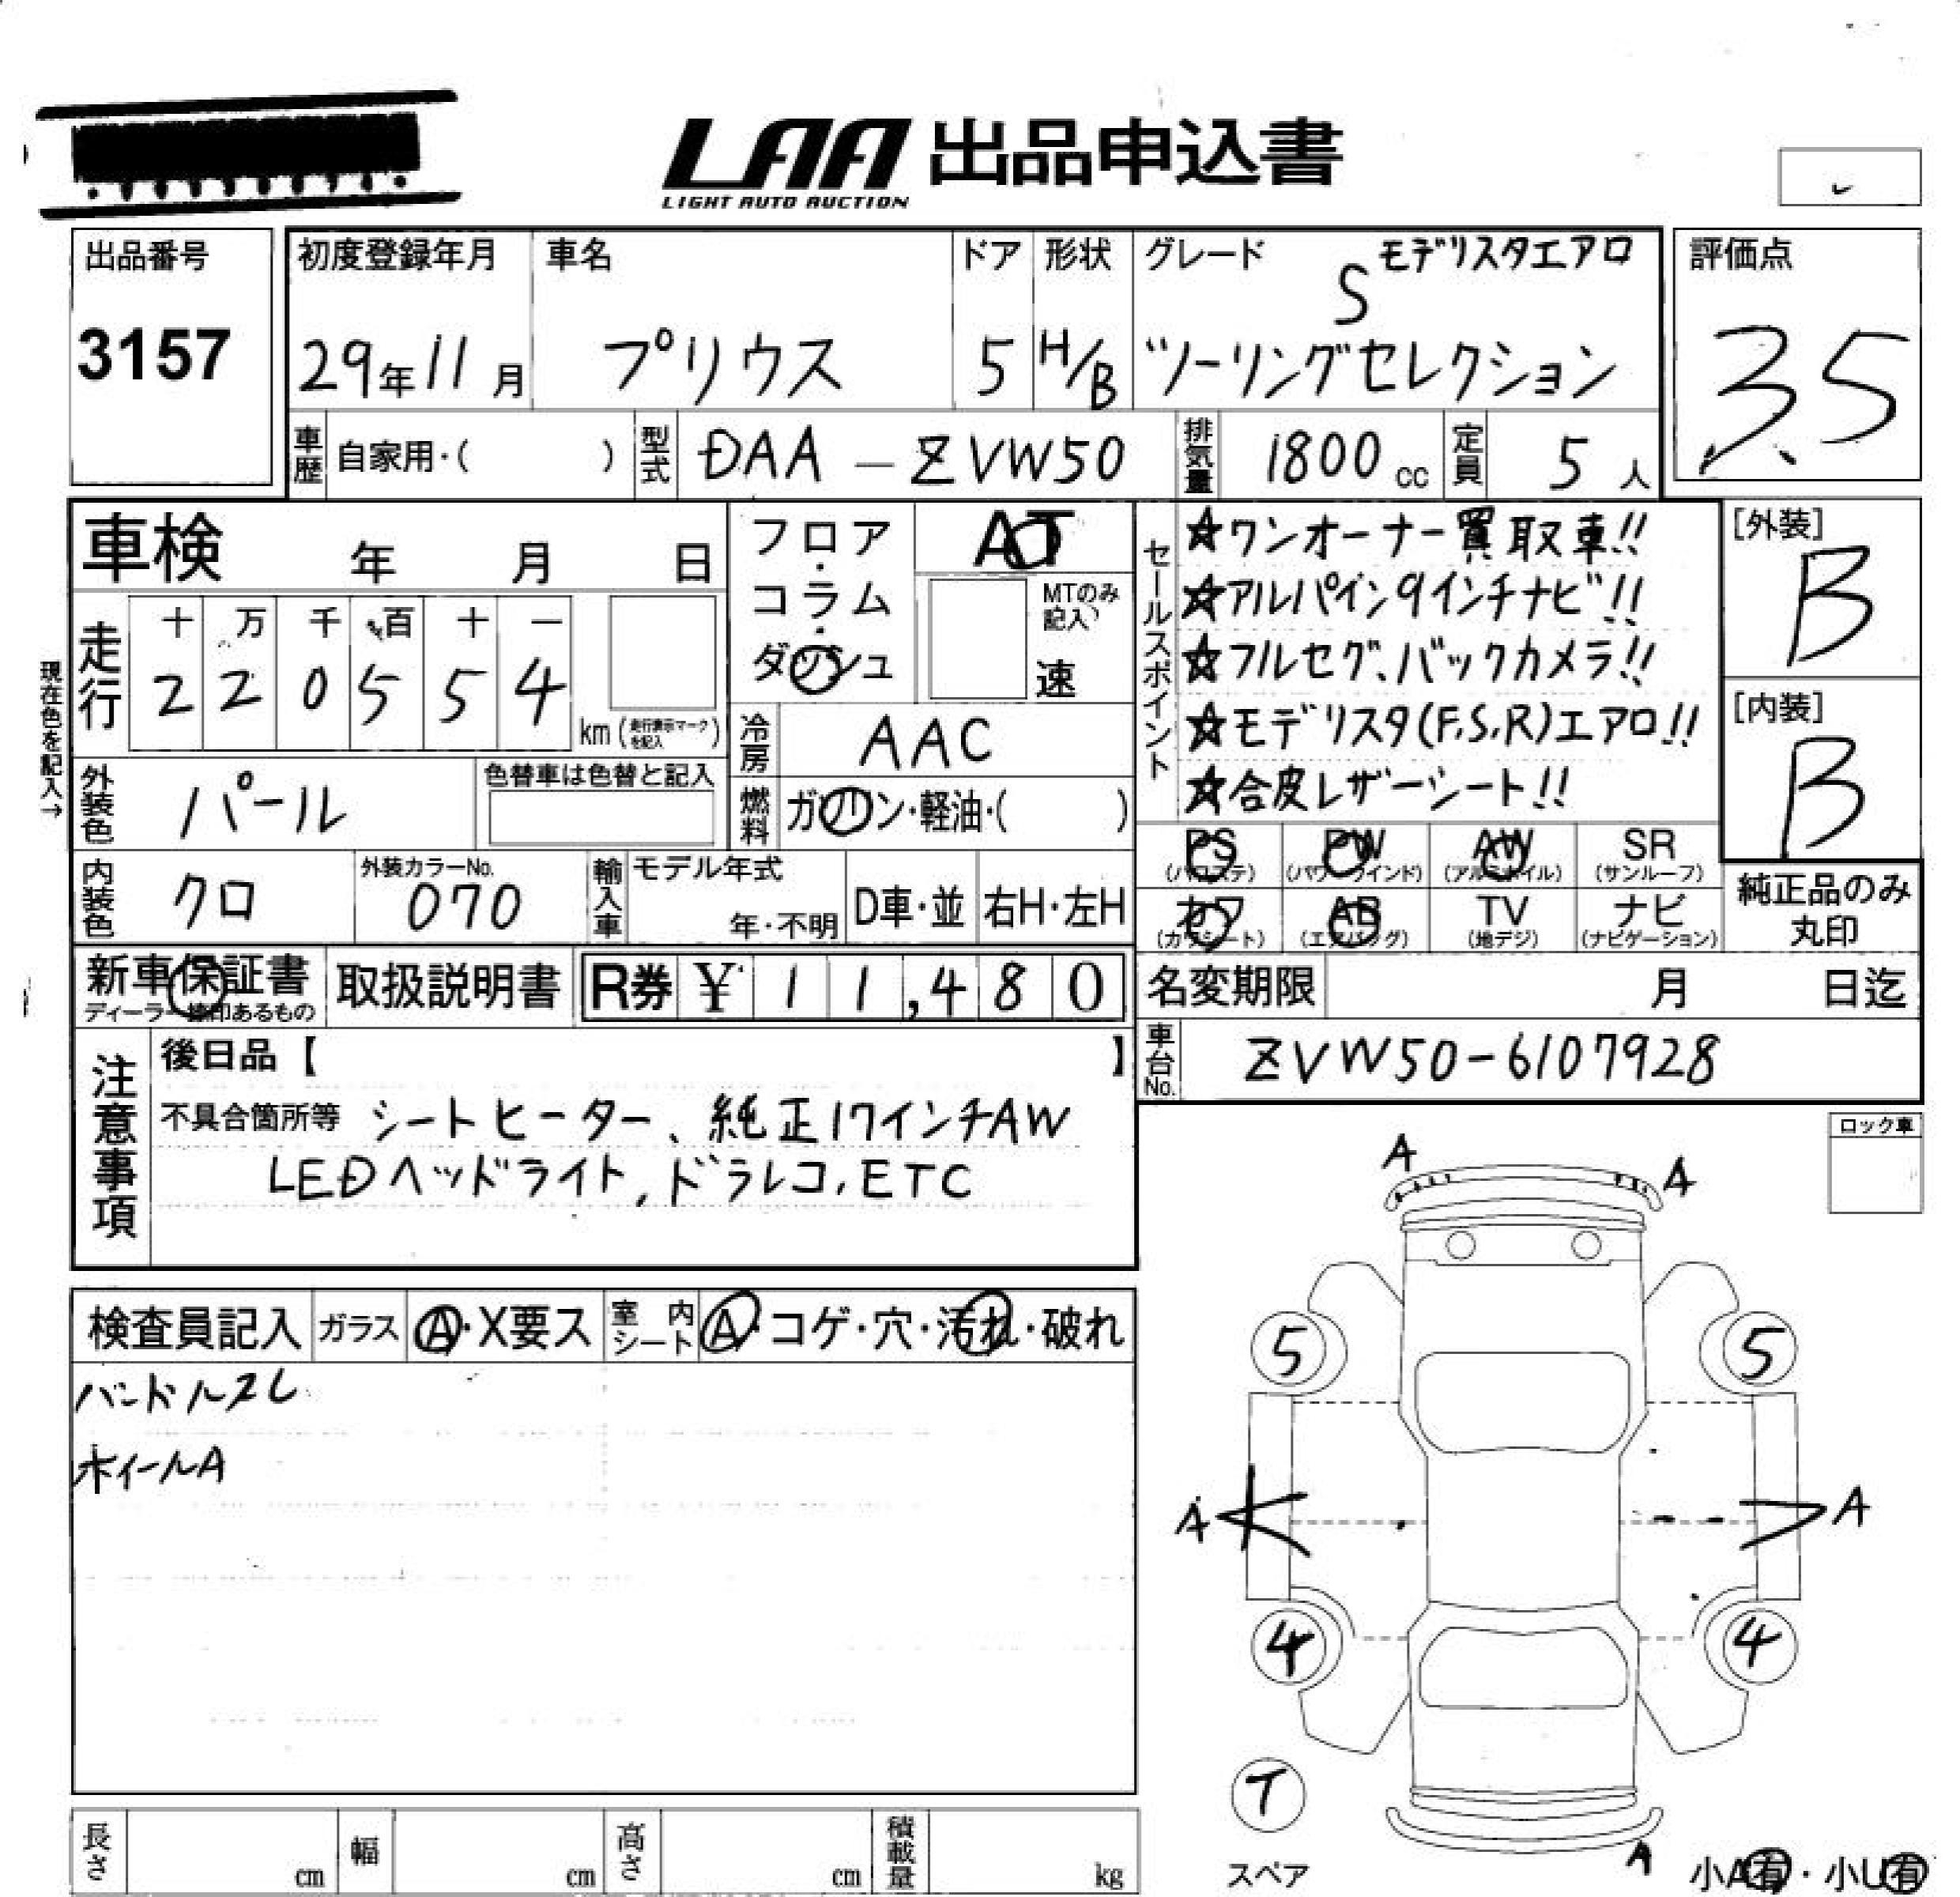 LAA 出品申込書
LIGHT AUTO AUCTION
出品番号
3157
初度登録年月
29年11月
車名
プリウス
ドア
5
形状
H/B
グレード
S モデリスタエアロ
ツーリングセレクション
評価点
3.5
車歴 自家用・( )
型式 DAA-ZVW50
排気量 1800cc
定員 5人
車検 年 月 日
現在色を記入→
走行
十 万 千 百 十 一
2 2 0 5 5 4
km(走行表示マークを記入)
フロア
コラム
ダッシュ
AT
MTのみ記入)
速
冷房 AAC
燃料 ガソリン・軽油・( )
外装色 パール
色替車は色替と記入
内装色 クロ
外装カラーNo.
070
輸入車
モデル年式
年・不明
D車・並
右H・左H
セールスポイント
☆ワンオーナー買取車!!
☆アルパイン9インチナビ!!
☆フルセグ、バックカメラ!!
☆モデリスタ(F,S,R)エアロ!!
☆合皮レザーシート!!
[外装]
B
[内装]
B
PS (パワステ)
PW (パワーウインド)
AW (アルミホイル)
SR (サンルーフ)
カワ (カワシート)
AB (エアバッグ)
TV (地デジ)
ナビ (ナビゲーション)
純正品のみ
丸印
新車保証書
ディーラー捺印あるもの
取扱説明書
R券 ¥11,480
名変期限 月 日迄
車台No. ZVW50-6107928
注意事項
後日品【 】
不具合箇所等 シートヒーター、純正17インチAW
LEDヘッドライト,ドラレコ,ETC
ロック車
検査員記入
ガラス A・X要ス
室内シート A・コゲ・穴・汚れ・破れ
ハンドルスレ
ホイールA
A
A
5
5
A
A
4
4
T
スペア
A
小A有・小U有
長さ cm
幅 cm
高さ cm
積載量 kg